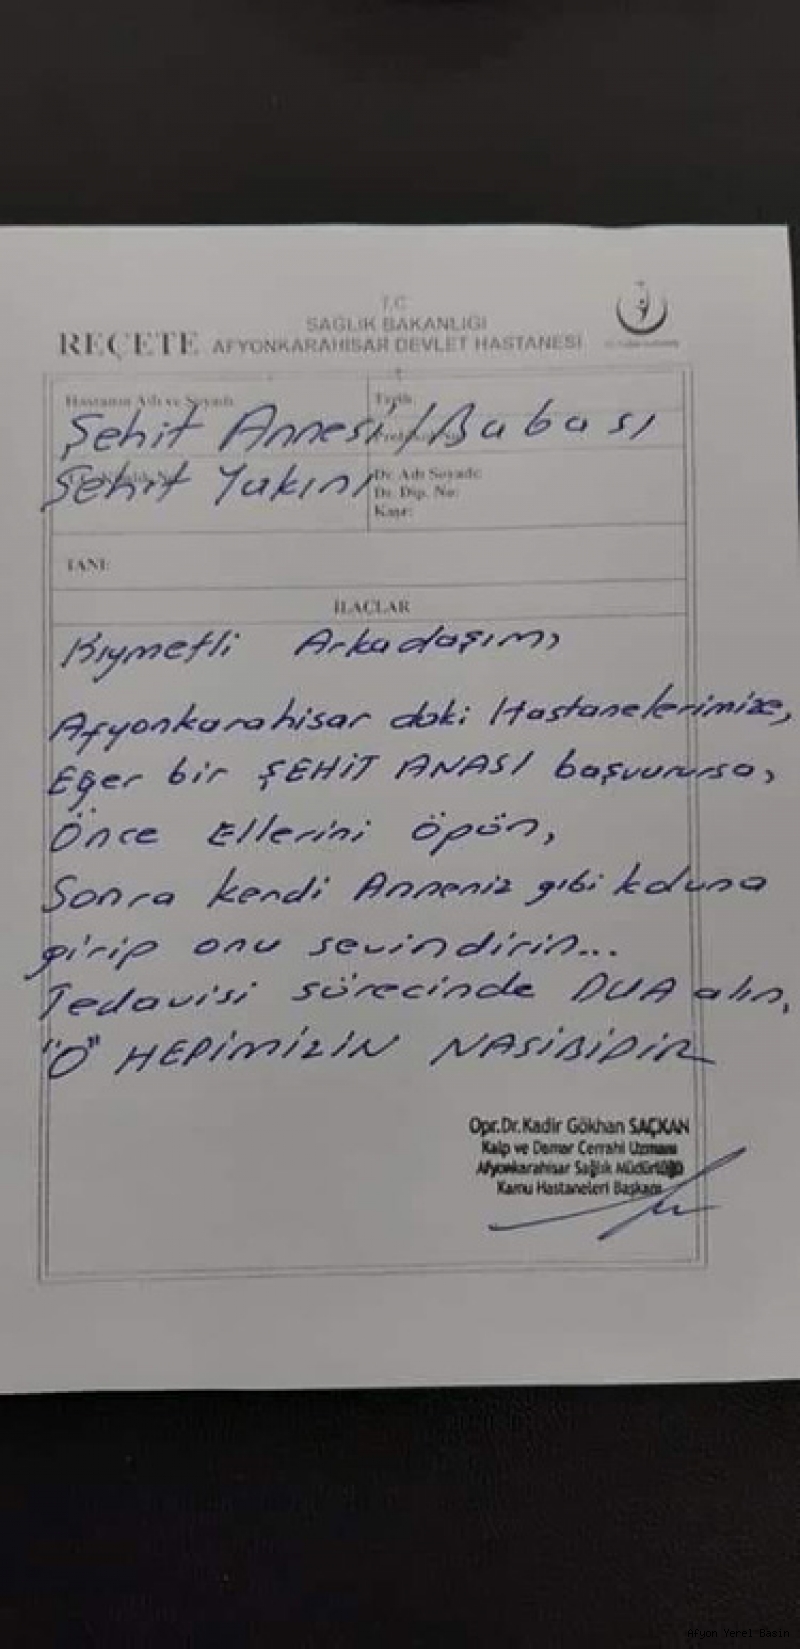 T.C.
SAĞLIK BAKANLIĞI
REÇETE AFYONKARAHİSAR DEVLET HASTANESİ
Hastanın Adı ve Soyadı
Tarih:
Şehit Annesi/Babası
Şehit Yakını
Dr. Adı Soyadı:
Dr. Dip. No:
Kaşe:
TANI:
İLAÇLAR
Kıymetli Arkadaşım,
Afyonkarahisar daki Hastanelerimize,
Eğer bir ŞEHİT ANASI başvurursa,
Önce Ellerini öpün,
Sonra kendi Anneniz gibi koluna
girip onu sevindirin...
Tedavisi sürecinde DUA alın,
"O" HEPİMİZİN NASİBİDİR
Opr.Dr.Kadir Gökhan SAÇKAN
Kalp ve Damar Cerrahi Uzmanı
Afyonkarahisar Sağlık Müdürlüğü
Kamu Hastaneleri Başkanı
Afyon Yerel Basın